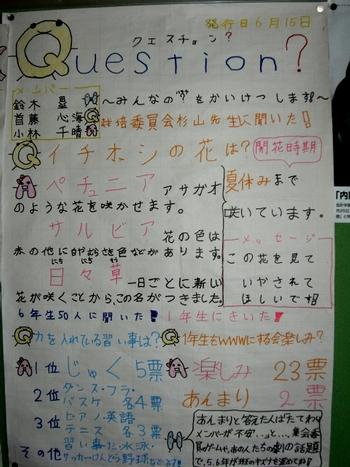 発行日6月15日
クエスチョン?
Question?
メンバー
鈴木
首藤 心海
小林 千晴
〜みんなの"?"をかいけつします〜
栽培委員会杉山先生に聞いた!
Qイチホシの花は?
開花時期
ペチュニア アサガオ
のような花を咲かせます。
夏休みまで
咲いています。
サルビア 花の色は
赤の他に白やむらさき色などがあります。
メッセージ
この花を見て
いやされて
ほしいです
日々草 一日ごとに新しい
にちにちそう
花が咲くことから、この名がつきました。
6年生50人に聞いた!
1年生にきいた!
Q力を入れている習い事は?
Q1年生をwwwにする会楽しみ?
1位 じゅく 5票
2位 ダンス・フラ・
バスケ 各4票
3位 ピアノ・英語・
テニス 各3票
その他
楽しみ 23票
あんまり 2票
あんまりと答えた人は
メンバーが不安